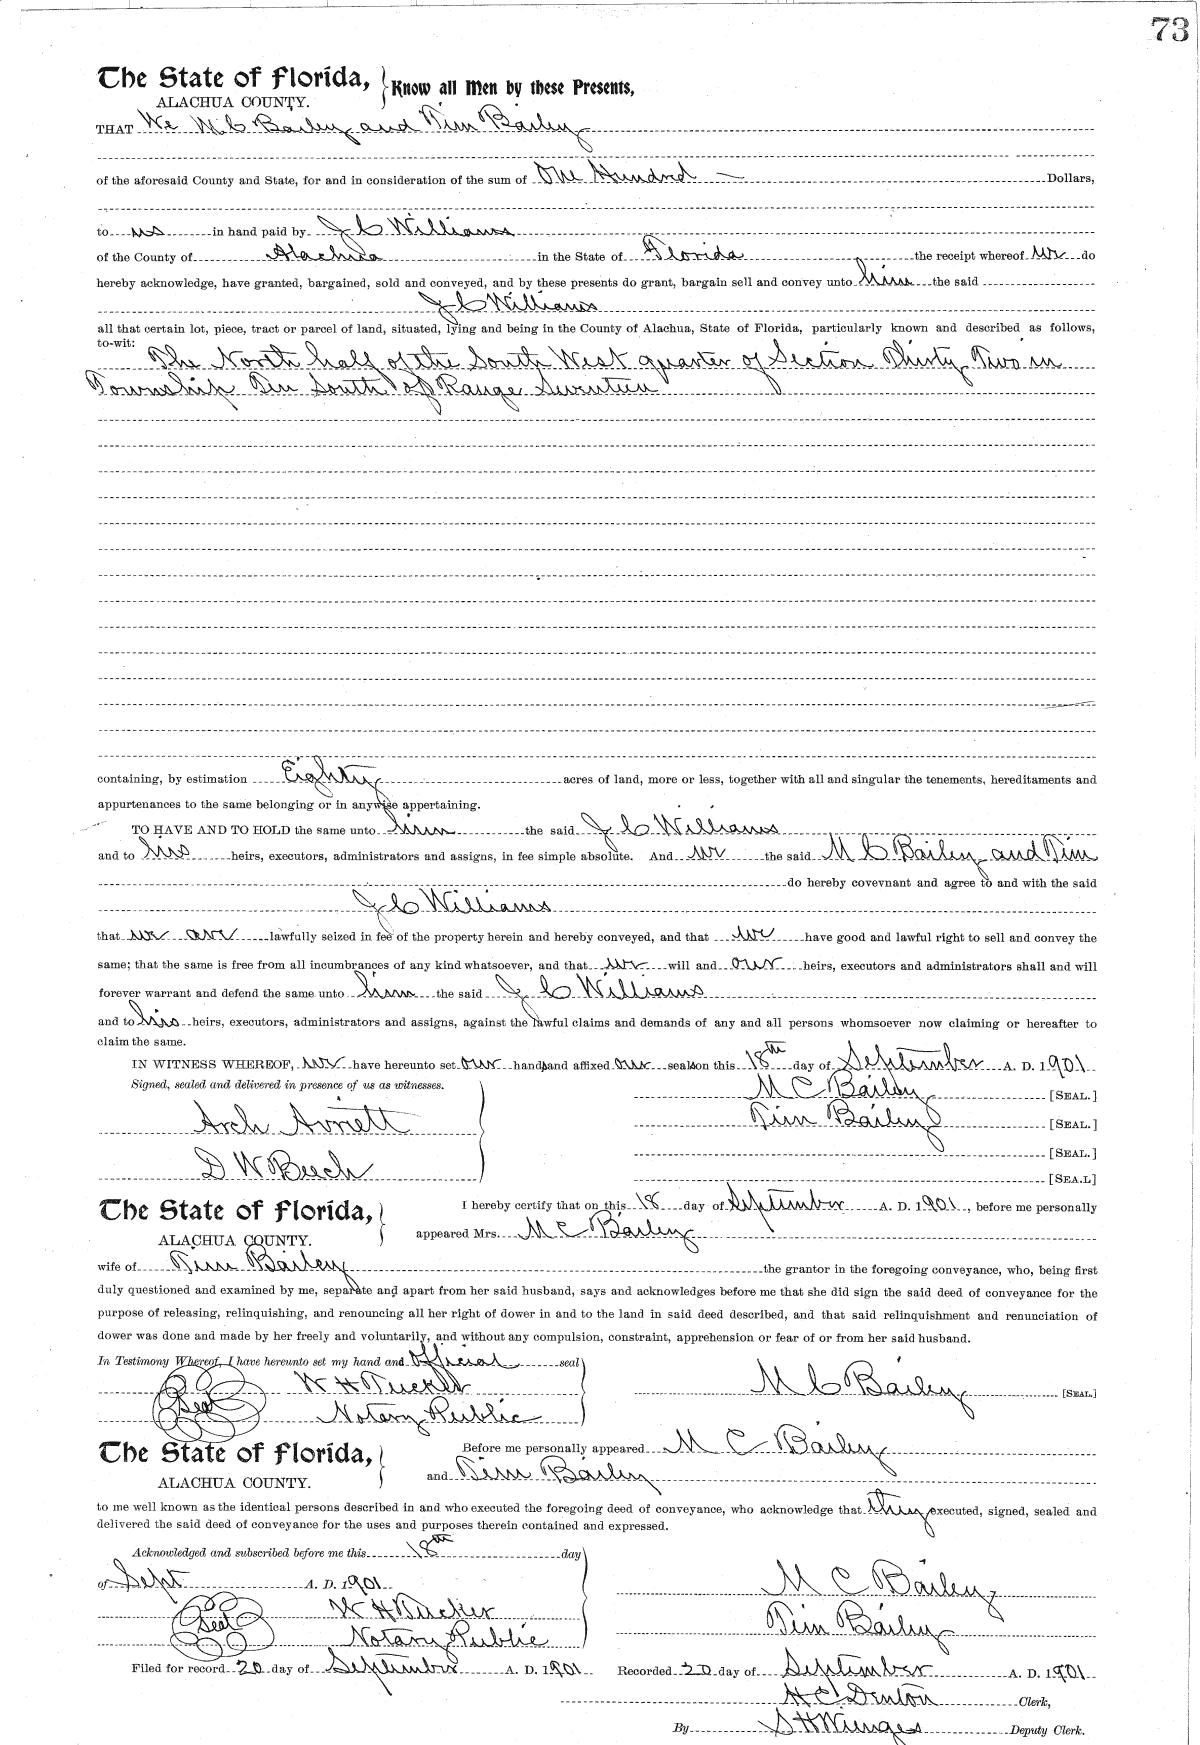 73
The State of Florida, Know all Men by these Presents,
ALACHUA COUNTY.
THAT We M C Bailey and Tim Bailey
of the aforesaid County and State, for and in consideration of the sum of One Hundred — Dollars,
to us in hand paid by J C Williams
of the County of Alachua in the State of Florida the receipt whereof we do
hereby acknowledge, have granted, bargained, sold and conveyed, and by these presents do grant, bargain sell and convey unto him the said
J C Williams
all that certain lot, piece, tract or parcel of land, situated, lying and being in the County of Alachua, State of Florida, particularly known and described as follows,
to-wit: The North half of the South West quarter of Section Thirty Two in
Township Ten South of Range Seventeen
containing, by estimation Eighty acres of land, more or less, together with all and singular the tenements, hereditaments and
appurtenances to the same belonging or in anywise appertaining.
TO HAVE AND TO HOLD the same unto him the said J C Williams
and to his heirs, executors, administrators and assigns, in fee simple absolute. And we the said M C Bailey and Tim
do hereby covevnant and agree to and with the said
J C Williams
that we are lawfully seized in fee of the property herein and hereby conveyed, and that we have good and lawful right to sell and convey the
same; that the same is free from all incumbrances of any kind whatsoever, and that we will and our heirs, executors and administrators shall and will
forever warrant and defend the same unto him the said J C Williams
and to his heirs, executors, administrators and assigns, against the lawful claims and demands of any and all persons whomsoever now claiming or hereafter to
claim the same.
IN WITNESS WHEREOF, we have hereunto set our hands and affixed our seals on this 18th day of September A. D. 1901
Signed, sealed and delivered in presence of us as witnesses. M C Bailey [SEAL.]
Arch Avriett Tim Bailey [SEAL.]
[SEAL.]
D W Beech [SEA.L]
The State of Florida, I hereby certify that on this 18 day of September A. D. 1901, before me personally
ALACHUA COUNTY. appeared Mrs. M C Bailey
wife of Tim Bailey the grantor in the foregoing conveyance, who, being first
duly questioned and examined by me, separate and apart from her said husband, says and acknowledges before me that she did sign the said deed of conveyance for the
purpose of releasing, relinquishing, and renouncing all her right of dower in and to the land in said deed described, and that said relinquishment and renunciation of
dower was done and made by her freely and voluntarily, and without any compulsion, constraint, apprehension or fear of or from her said husband.
In Testimony Whereof, I have hereunto set my hand and official seal
Seal W H Tucker M C Bailey [SEAL.]
Notary Public
The State of Florida, Before me personally appeared M C Bailey
ALACHUA COUNTY. and Tim Bailey
to me well known as the identical persons described in and who executed the foregoing deed of conveyance, who acknowledge that they executed, signed, sealed and
delivered the said deed of conveyance for the uses and purposes therein contained and expressed.
Acknowledged and subscribed before me this 18th day
of Sept A. D. 1901 M C Bailey
Seal W H Tucker Tim Bailey
Notary Public
Filed for record 20 day of September A. D. 1901 Recorded 20 day of September A. D. 1901
H C Denton Clerk,
By S H Wienges Deputy Clerk.